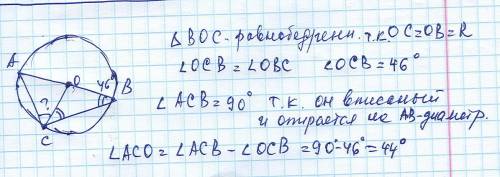 A
O
46°
B
?
C
△BOC-равнобедренн. т.к. OC=OB=R
∠OCB=∠OBC ∠OCB=46°
∠ACB=90° т.к. он вписаный
и опирается на AB-диаметр.
∠ACO=∠ACB-∠OCB=90°-46°=44°